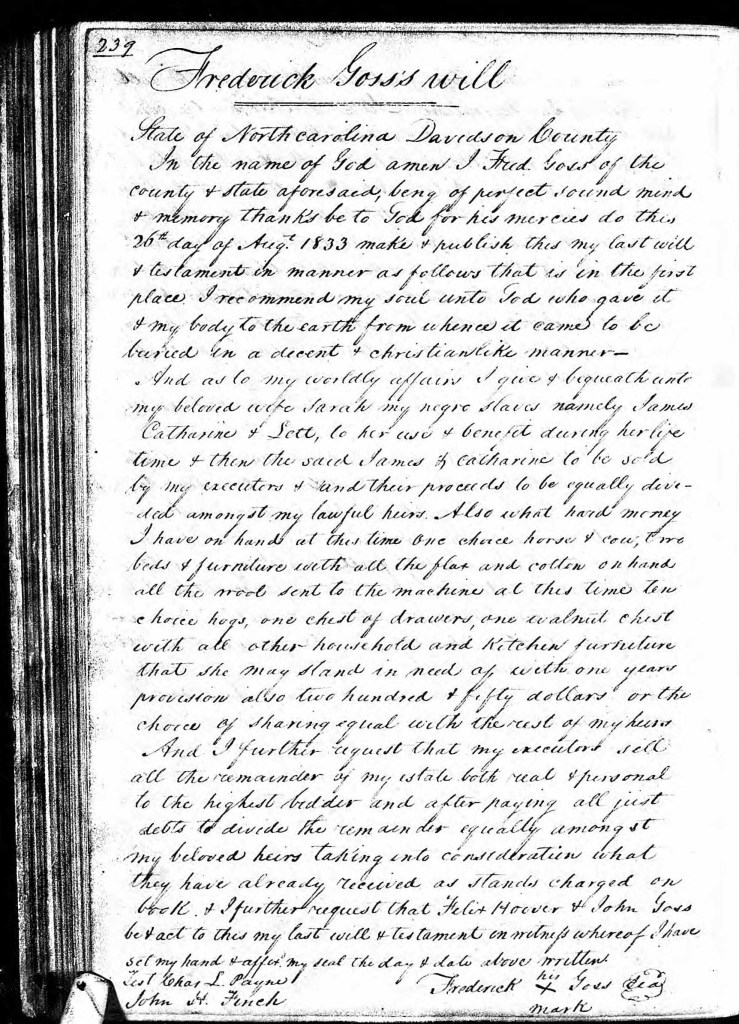 239
Frederick Goss's will
State of North carolina Davidson County
In the name of God amen I Fred. Goss of the
county & state aforesaid, beng of perfect sound mind
& memory thanks be to God for his mercies do this
26th day of Augt. 1833 make & publish this my last will
& testament in manner as follows that is in the first
place. I recommend my soul unto God who gave it
& my body to the earth from whence it came to be
buried in a decent & christianlike manner—
And as to my worldly affairs I give & bequeath unto
my beloved wife Sarah my negro slaves namely James
Catharine & Lett, to her use & benefit during her life
time & then the said James & Catharine to be sold
by my executors & and their proceeds to be equally divi-
ded amongst my lawful heirs. Also what hard money
I have on hand at this time one choice horse & cow, two
beds & furniture with all the flax and cotton on hand
all the wool sent to the machine at this time ten
choice hogs, one chest of drawers, one walnut chest
with all other household and Kitchen furniture
that she may stand in need of, with one years
provision also two hundred & fifty dollars or the
choice of sharing equal with the rest of my heirs
And I further request that my executors sell
all the remainder of my estate both real & personal
to the highest bidder and after paying all just
debts to divide the remainder equally amongst
my beloved heirs taking into consideration what
they have already received as stands charged on
book. & I further request that Felix Hoover & John Goss
be & act to this my last will & testament in witness whereof I have
set my hand & affix. my seal the day & date above written.
Test Chas L. Payne Frederick his X mark Goss Seal
John H. Finch